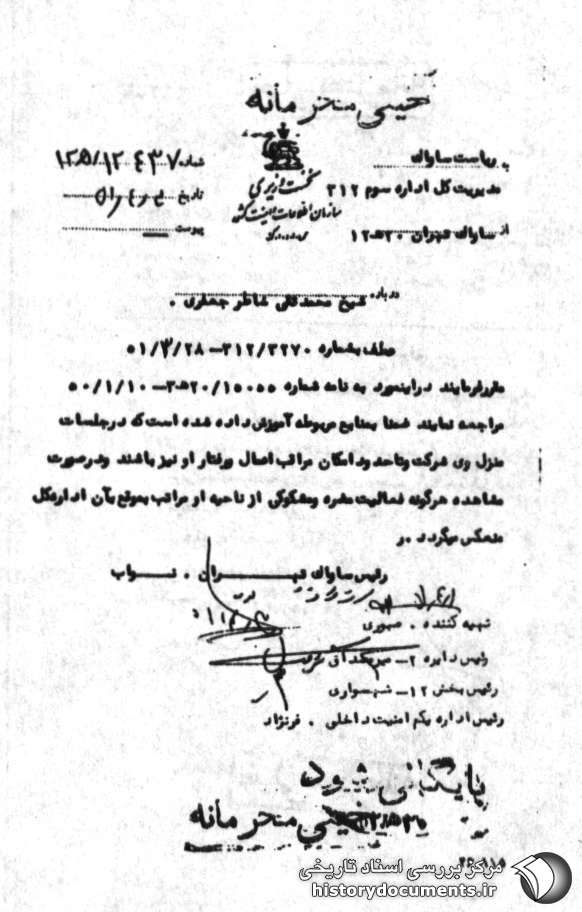 خیلی محرمانه
به ریاست ساواک
مدیریت کل اداره سوم ۳۱۲
از ساواک تهران ۲۰ه۱۲
نخست وزیری
سازمان اطلاعات و امنیت کشور
شماره ۱۲۵/۱۲۴۳۷
تاریخ
پیوست
درباره شیخ محمدتقی شاطر جعفری .
عطف بشماره ۳۱۲/۳۲۷۰ـ ۵۱/۳/۲۸
مقررفرمایند در اینمورد به نامه شماره ۲۰/۱۵۰۵۵ه۳ـ ۵۰/۱/۱۰
مراجعه نمایند ضمنا بمنابع مربوطه آموزش داده شده است که در جلسات
منزل وی شرکت وتاحد ودامکان مراتب اعمال ورفتار او نیز باشند ودرصورت
مشاهده هرگونه فعالیت مضره ومشکوکی از ناحیه او مراتب بموقع بآن اداره کل
منعکس میگردد . ر
رئیس ساواک تهران . نواب
تهیه کننده . صبوری
رئیس دایره ۲ـ
رئیس بخش ۱۲ـ شهسواری
رئیس اداره یکم امنیت داخلی . فرنژاد
بایگانی شود
خیلی محرمانه
مرکز بررسی اسناد تاریخی
historydocuments.ir